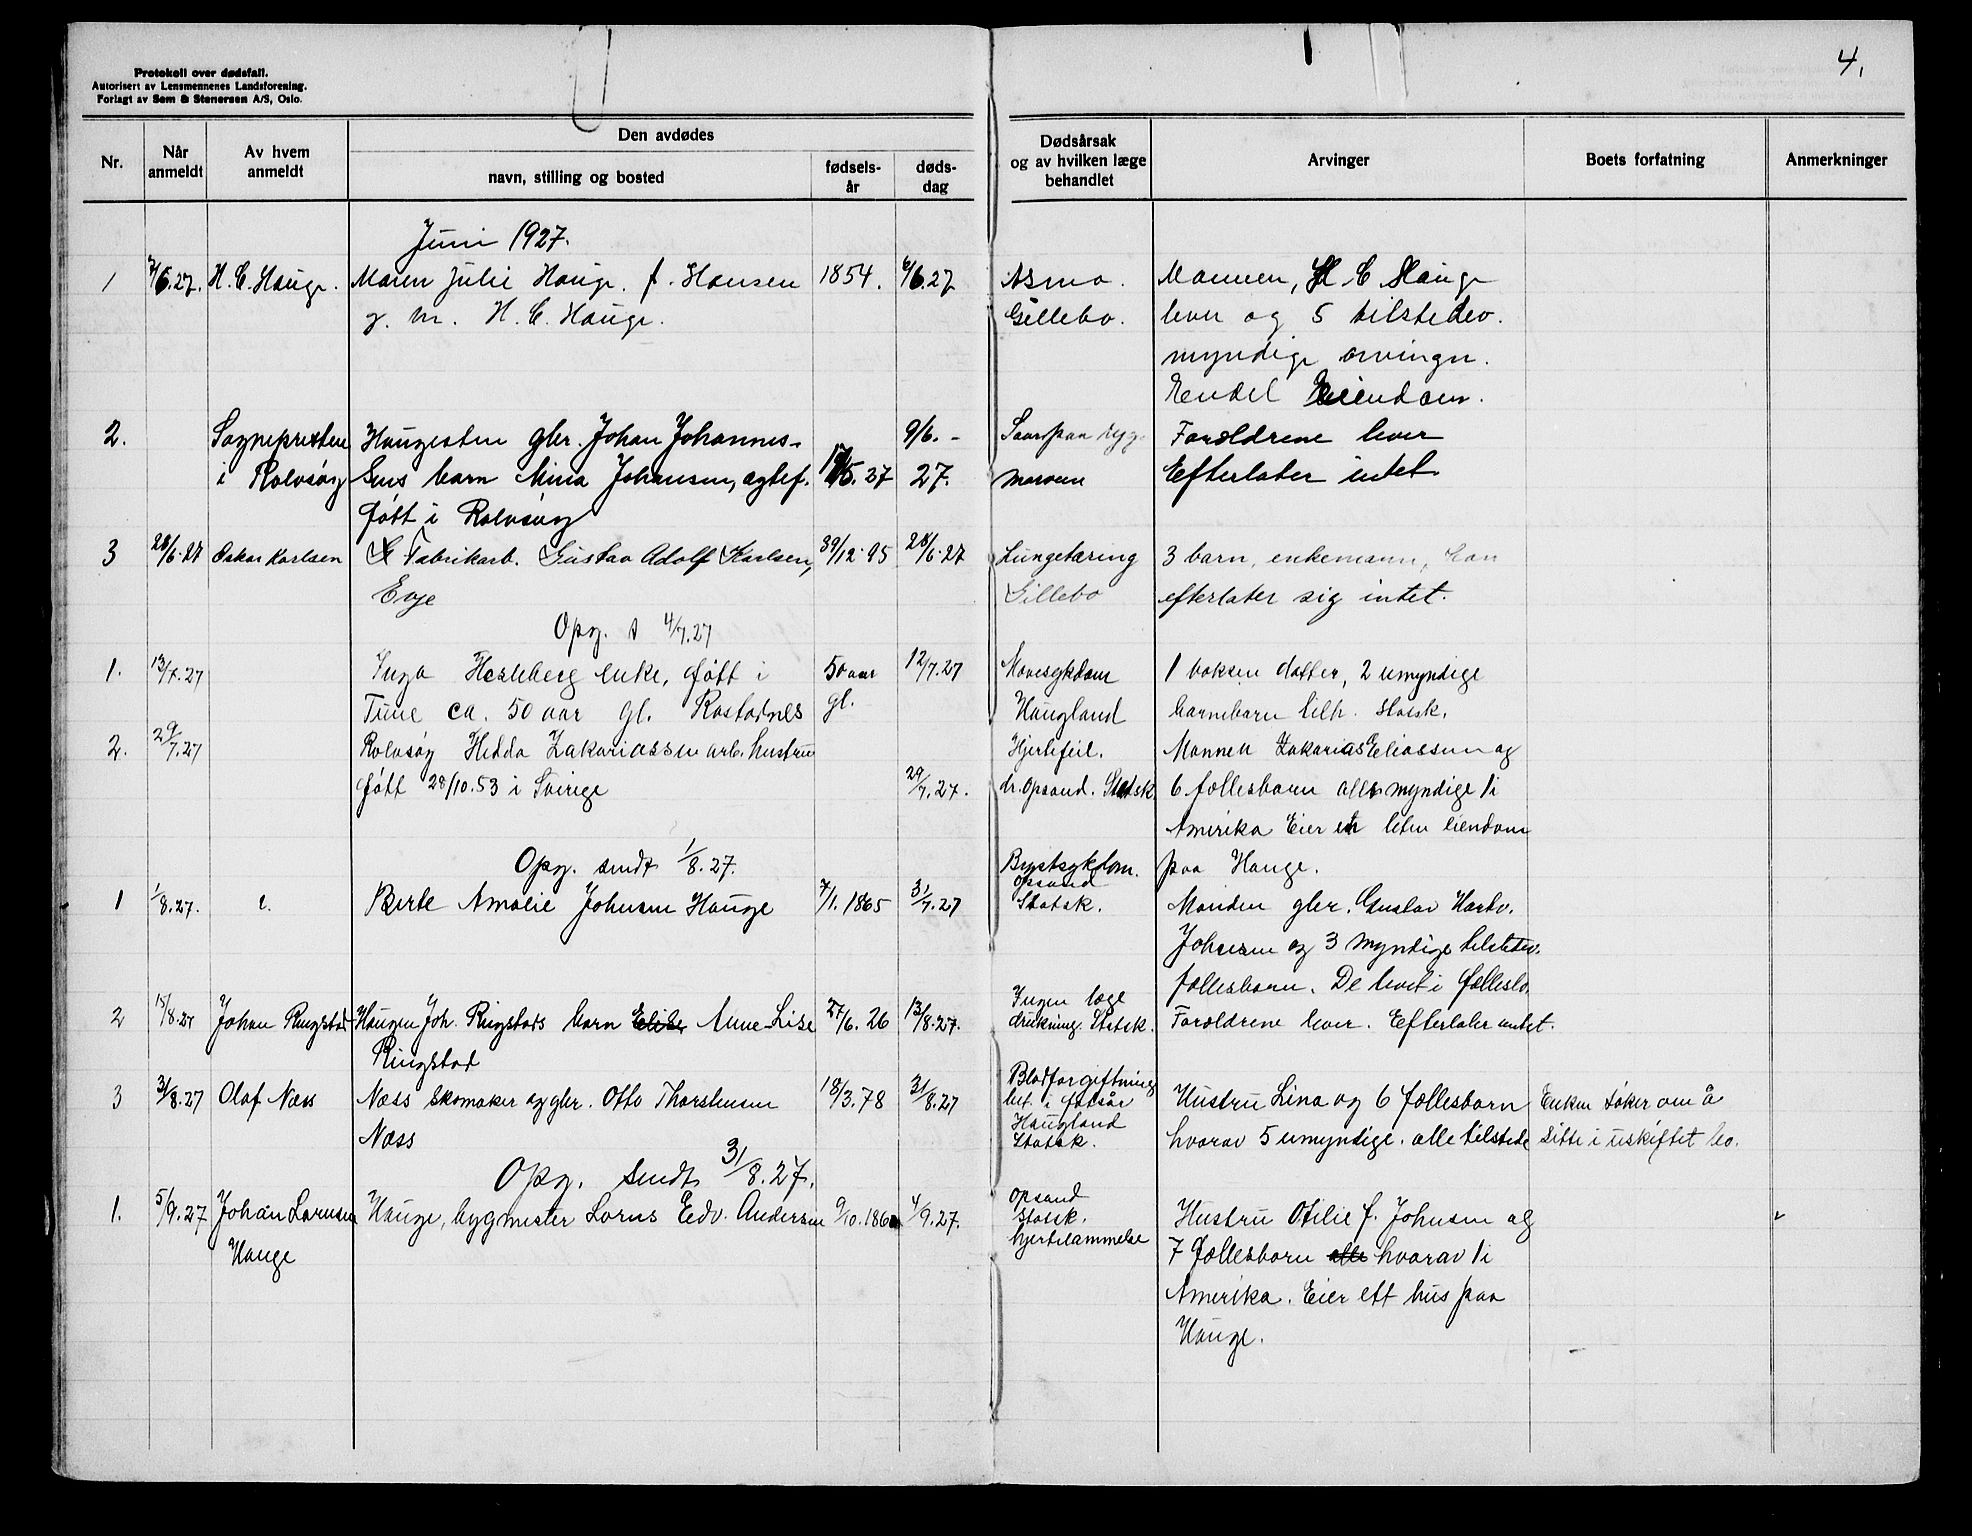 Protokoll over dødsfall.
Autorisert av Lensmennenes Landsforening.
Forlagt av Sem & Stenersen A/S, Oslo.
4.
Nr.
Når anmeldt
Av hvem anmeldt
Den avdødes
navn, stilling og bosted
fødsels-år
døds-dag
Dødsårsak og av hvilken læge behandlet
Arvinger
Boets forfatning
Anmerkninger
Juni 1927.
1 7/6.27. H. C. Hauge. Maren Julie Hauge. f. Hansen 1854. 6/6.27 Asma. Mannen, H C Hauge
g. m. H. C. Hauge. Gillebo. lever og 5 tilstedev.
myndige arvinger.
Endel Eiendom.
2. Sognepresten Haugesten gbr. Johan Johannes- 9/6. - Foreldrene lever
i Rolvsøy sens barn Mina Johansen, egtef. 5.27 27. Efterlater intet.
født i Rolvsøy
3 28/6.27 Oskar Karlsen Fabrikarb. Gustav Adolf Karlsen, 12.95 28/6.27 Lungetæring 3 barn, enkemann, han
Evje Gillebo efterlater sig intet.
Opg. s 4/7.27
1. 13/7.27 Inga Hesleberg enke, født i 50 aar 12/7.27 Mavesykdom 1 voksen datter, 2 umyndige
Tune ca. 50 aar gl. Rostadnes gl. Haugland barnebarn tilh. Statsk.
2. 29/7.27 Rolvsøy Hedda Zakariassen arb. hustru Hjertefeil. Mannen Zakarias Eliassen og
født 28/10.53 i Sverige 29/7.27. dr. Opsand. Statsk. 6 fællesbarn alle myndige 1 i
Amerika Eier en liten eiendom
Opg. sendt 1/8.27. Brystsykdom. paa Hauge.
1 1/8.27. Berte Amalie Johnsen Hauge 7/1.1865 31/7.27 Opsand Statsk. Manden gbr. Gustav Hartv.
Johnsen og 3 myndige tilstedev.
fællesbarn. De levet i fællesbo.
2 15/8.27 Johan Ringstad Haugen Joh. Ringstads barn Anne-Lise 27/6.26 13/8.27. Ingen læge drukning. Statsk. Foreldrene lever. Efterlater intet.
Ringstad
3 31/8.27 Olaf Næss Næss skomaker og gbr. Otto Thorstensen 18/3.78 31/8.27 Blodforgiftning Hustru Lina og 6 fællesbarn Enken søker om å
Næss Haugland Statsk. hvorav 5 umyndige. alle tilstede sitte i uskiftet bo.
Opg. sendt 31/8.27.
1. 5/9.27 Johan Larensen Hauge, bygmester Lorns Edv. Andersen 9/10.1860 4/9.27. Opsand Statsk. hjertelammelse Hustru Otilie f. Johnsen og
Hauge 7 fællesbarn alle hvorav 1 i
Amerika. Eier ett hus paa
Hauge.